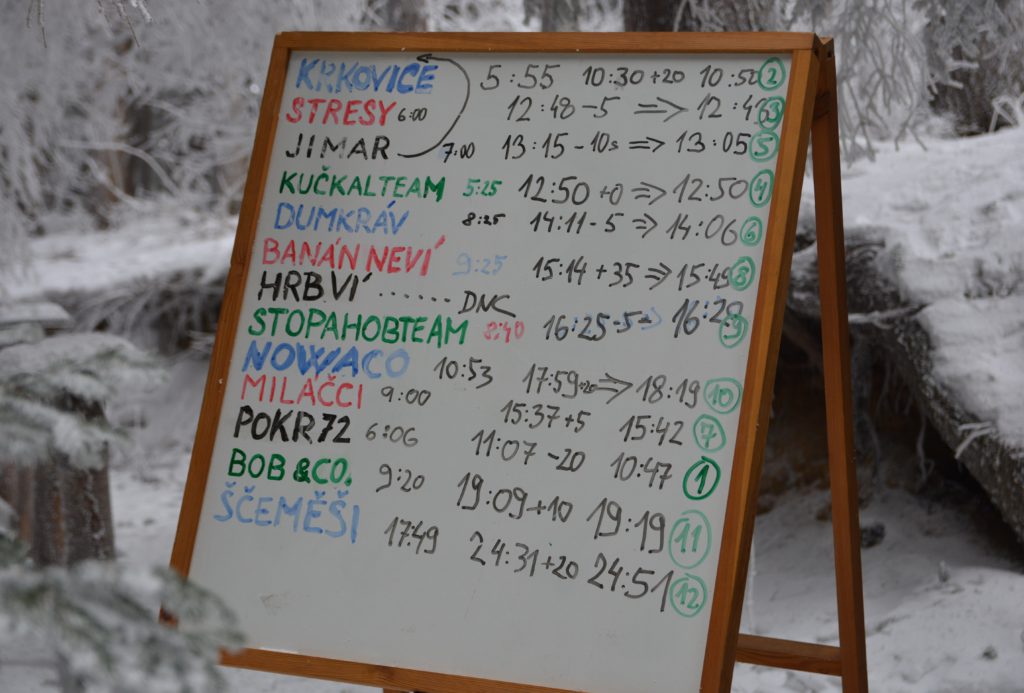 KRKOVICE 5:55 10:30+20 10:50 2
STRESY 6:00 12:48 -5 => 12:43 3
JIMAR 7:00 13:15 - 10s => 13:05 5
KUČKALTEAM 5:25 12:50 +0 => 12:50 4
DUMKRÁV 8:25 14:11 - 5 => 14:06 6
BANÁN NEVÍ 9:25 15:14 + 35 => 15:49 8
HRBVÍ ....... DNC
STOPAHOBTEAM 8:40 16:25-5 16:20 9
NOWACO 10:53 17:59+20 => 18:19 10
MILÁČCI 9:00 15:37+5 15:42 7
POKR72 6:06 11:07 -20 10:47 1
BOB & CO. 9:20 19:09+10 19:19 11
ŠČEMĚŠI 17:49 24:31+20 24:51 12